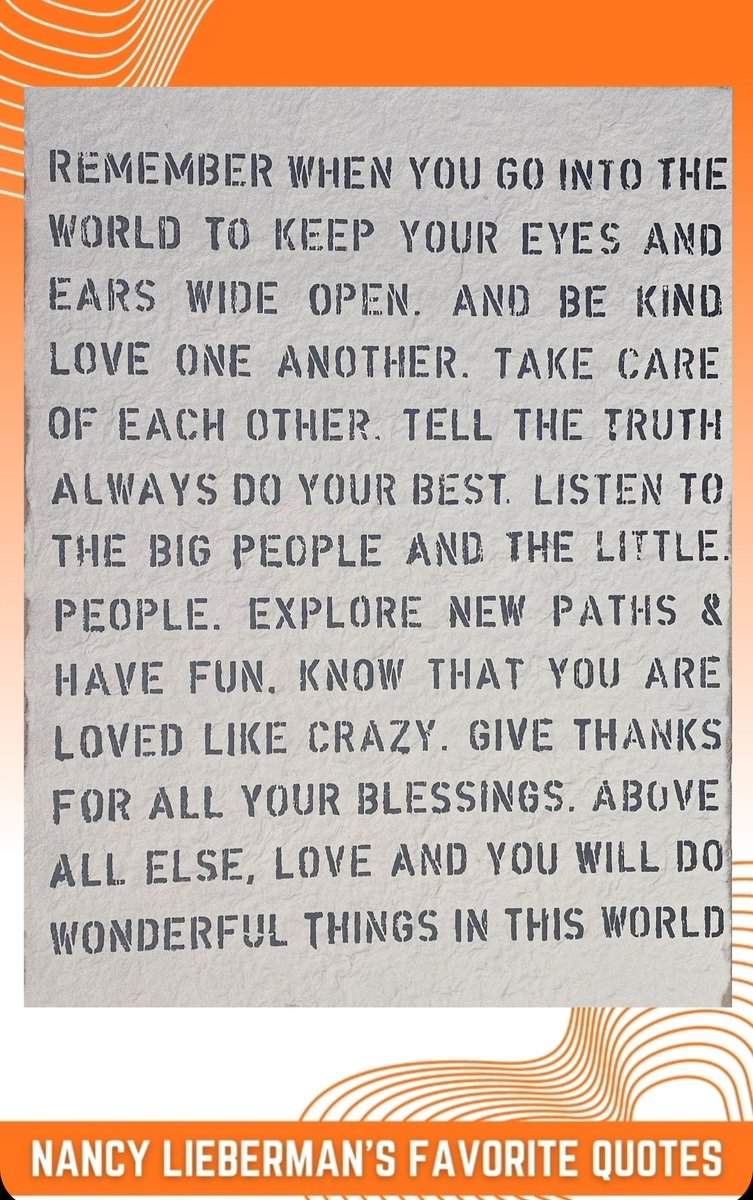 REMEMBER WHEN YOU GO INTO THE
WORLD TO KEEP YOUR EYES AND
EARS WIDE OPEN. AND BE KIND
LOVE ONE ANOTHER. TAKE CARE
OF EACH OTHER. TELL THE TRUTH
ALWAYS DO YOUR BEST. LISTEN TO
THE BIG PEOPLE AND THE LITTLE.
PEOPLE. EXPLORE NEW PATHS &
HAVE FUN. KNOW THAT YOU ARE
LOVED LIKE CRAZY. GIVE THANKS
FOR ALL YOUR BLESSINGS. ABOVE
ALL ELSE, LOVE AND YOU WILL DO
WONDERFUL THINGS IN THIS WORLD
NANCY LIEBERMAN'S FAVORITE QUOTES